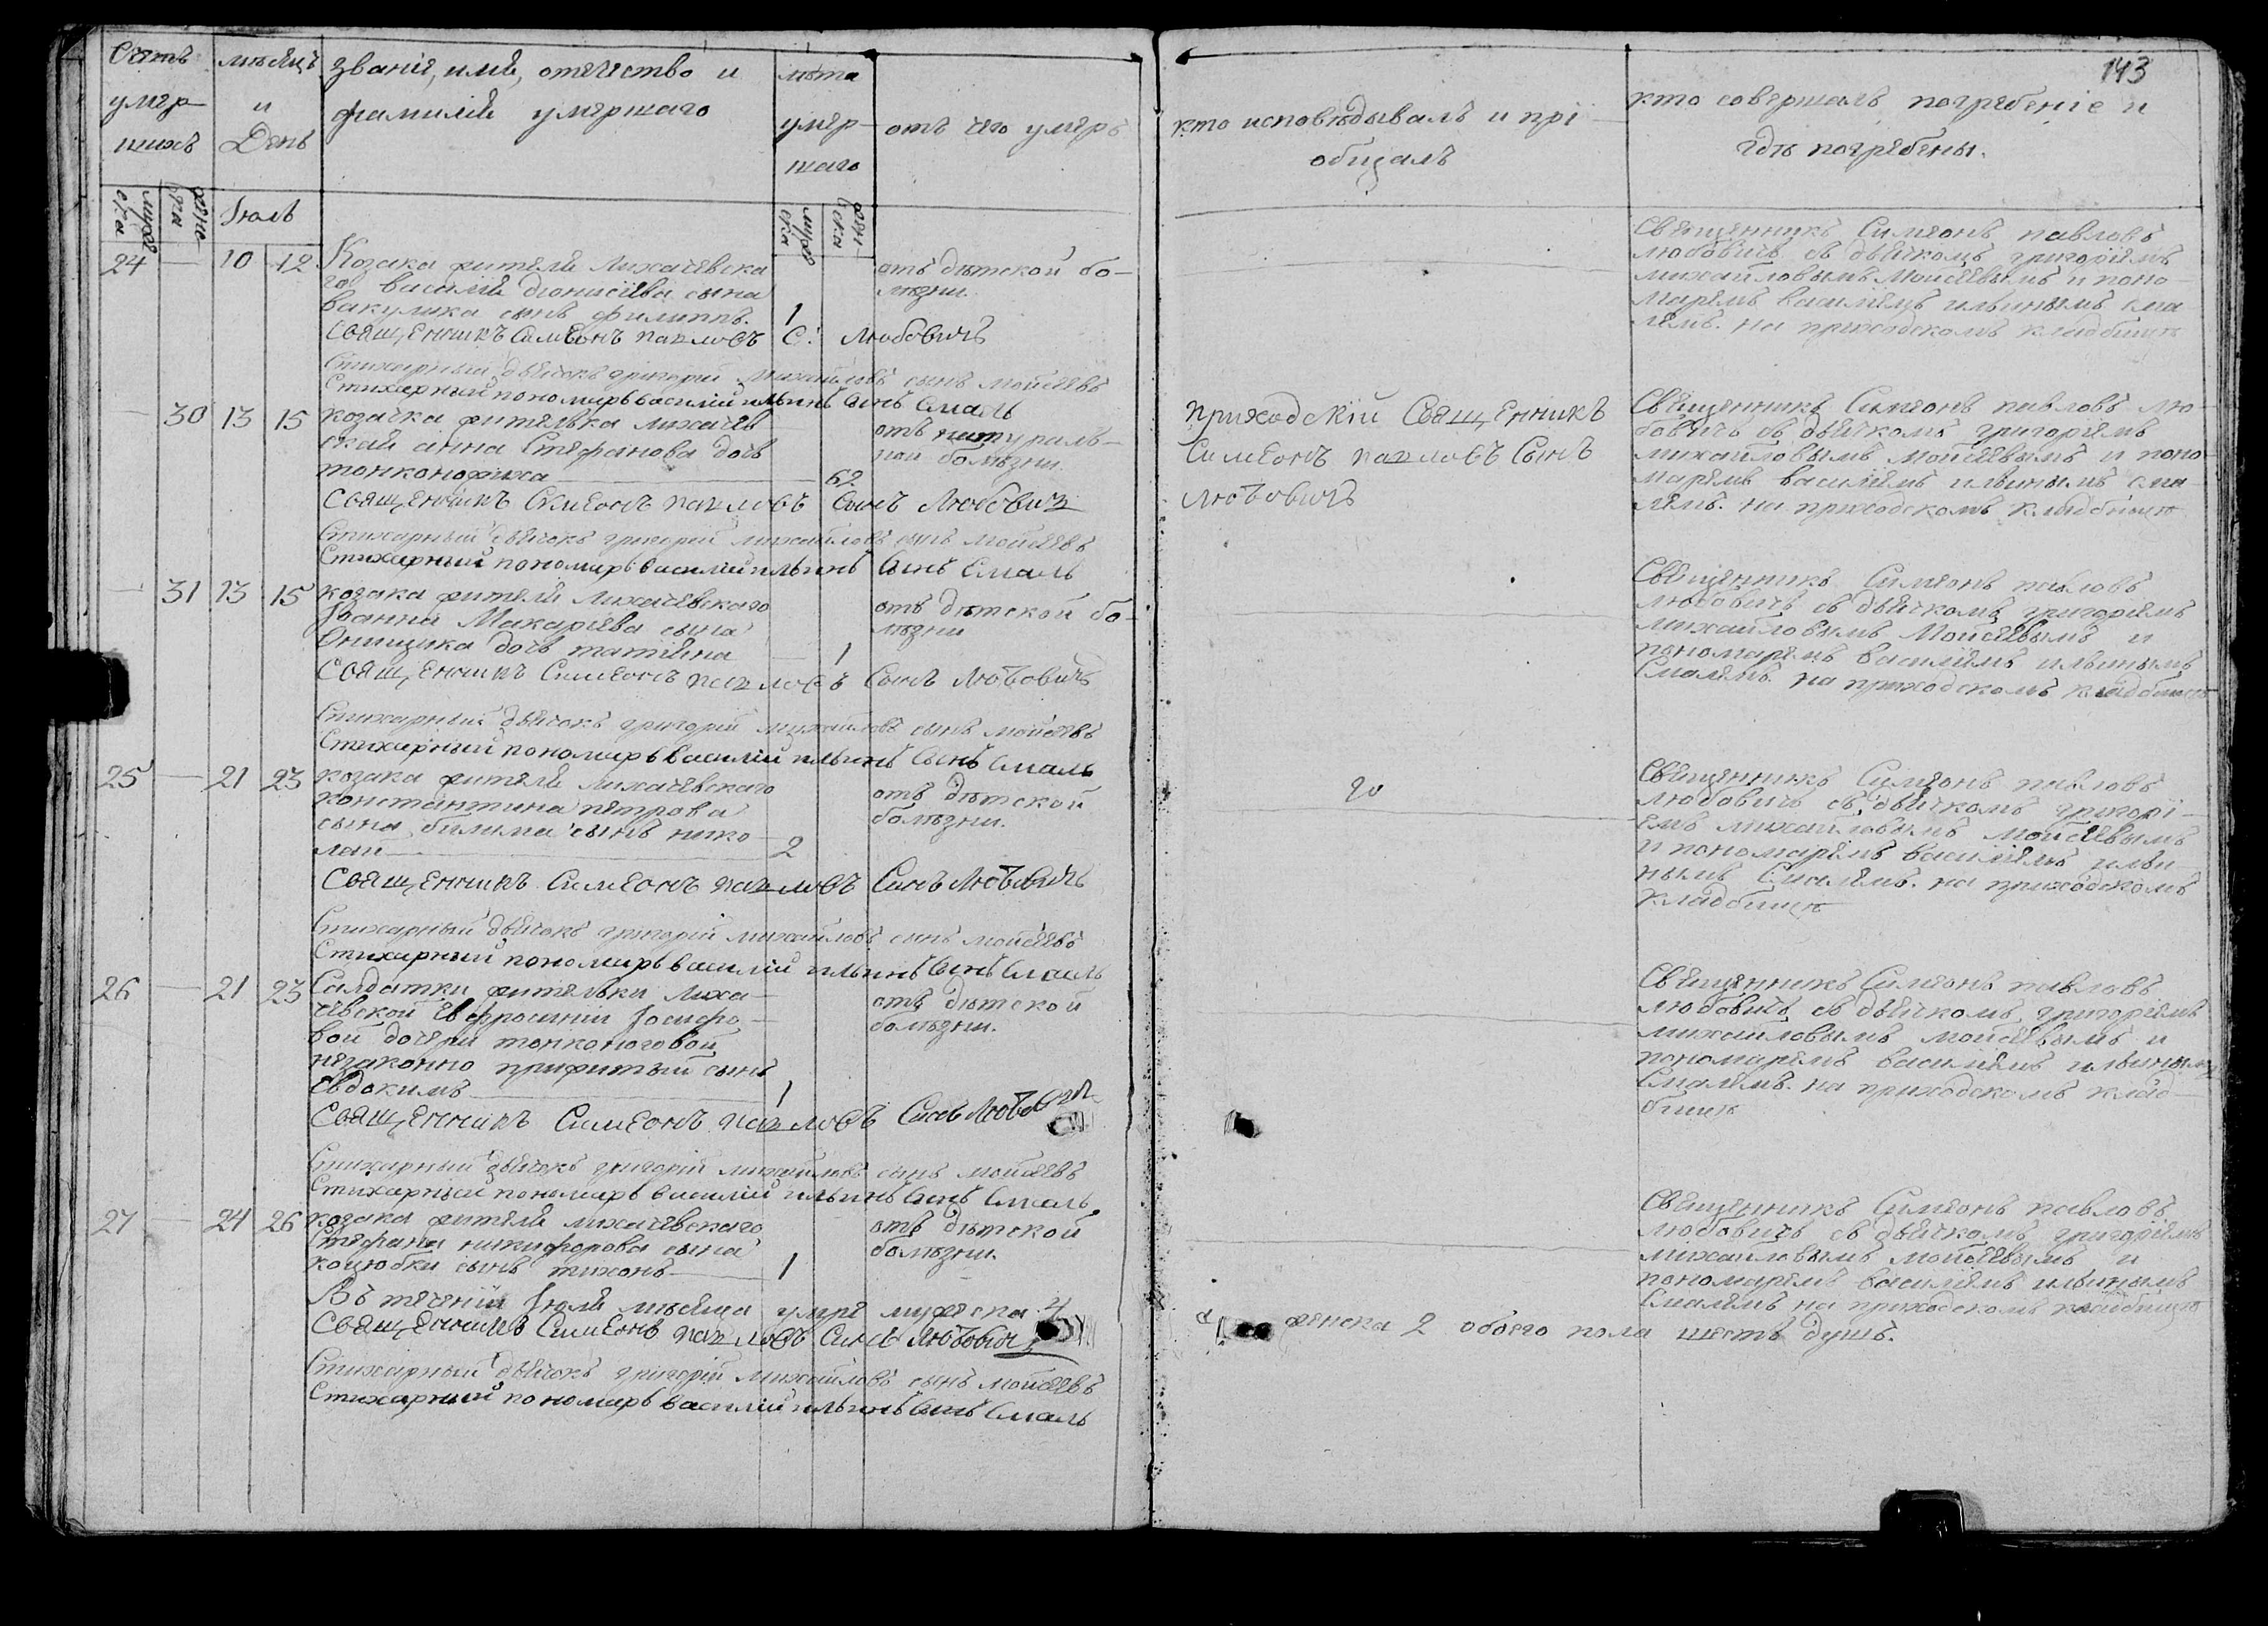 143
Счетъ умер-
шихъ
мѣсяцъ
и
День
званіе, имя, отечество и
фамилія умершаго
лѣта
умер-
шаго
отъ чего умеръ
кто исповѣдывалъ и прі-
общалъ
кто совершалъ погребеніе и
гдѣ погребены.
муже
ска
жен-
ска
Іюль
муже
ска
жен-
ска
24 — 10 12
Козака жителя Лихачевска
го василія діонисіева сына
вакулика сынъ филиппъ.
1
отъ дѣтской бо-
лѣзни.
Священникъ Симеонъ павловъ
любовичъ съ дьячкомъ григоріемъ
михайловымъ Моисеевымъ и поно
маремъ василіемъ ильинымъ сма
лемъ. на приходскомъ кладбищѣ
Священникъ Симеонъ павловъ С: Любовичъ
Стихарный дьячокъ григорій михайловъ сынъ моисеевъ
Стихарный пономарь василій ильинъ Сынъ Смаль
— 30 13 15
козачка жителька лихачев
ская анна Стефанова дочь
тонконожка
62
отъ натураль-
ной болѣзни.
приходскій Священникъ
Симеонъ павловъ Сынъ
Любовичъ
Священникъ Симеонъ павловъ лю-
бовичъ съ дьячкомъ григоріемъ
михайловымъ моисеевымъ и поно
маремъ василіемъ ильинымъ сма
лемъ. на приходскомъ кладбищѣ
Священникъ Симеонъ павловъ Сынъ Любовичъ
Стихарный дьячокъ григорій михайловъ сынъ моисеевъ
Стихарный пономарь василій ильинъ Сынъ Смаль
— 31 13 15
козака жителя лихачевскаго
Іоанна Макарьева сына
Онищика дочь татіяна
1
отъ дѣтской бо-
лѣзни
Священникъ Симеонъ павловъ
любовичъ съ дьячкомъ григоріемъ
михайловымъ Моисеевымъ и
пономаремъ василіемъ ильинымъ
Смалемъ. на приходскомъ кладбищѣ
Священникъ Симеонъ павловъ Сынъ Любовичъ
Стихарный дьячокъ григорій михайловъ сынъ моисеевъ
Стихарный пономарь василій ильинъ Сынъ Смаль
25 — 21 23
козака жителя лихачевскаго
константина петрова
сына билима сынъ нико
лай
2
отъ дѣтской
болѣзни.
Священникъ Симеонъ павловъ
любовичъ съ дьячкомъ григорі-
емъ михайловымъ моисеевымъ
и пономаремъ василіемъ ильи
нымъ Смалемъ. на приходскомъ
кладбищѣ
Священникъ Симеонъ павловъ Сынъ Любовичъ
Стихарный дьячокъ григорій михайловъ сынъ моисеевъ
Стихарный пономарь василій ильинъ Сынъ Смаль
26 — 21 23
Салдатки жительки лиха-
чевской Евфросиніи Іосифо-
вой дочери тонконоговой
незаконно прижитый сынъ
Евдокимъ
1
отъ дѣтской
болѣзни.
Священникъ Симеонъ павловъ
любовичъ съ дьячкомъ григоріемъ
михайловымъ моисеевымъ и
пономаремъ василіемъ ильинымъ
Смалемъ. на приходскомъ клад-
бищѣ
Священникъ Симеонъ павловъ Сынъ Любовичъ
Стихарный дьячокъ григорій михайловъ сынъ моисеевъ
Стихарный пономарь василій ильинъ Сынъ Смаль
27 — 24 26
козака жителя лихачевскаго
Стефана никифорова сына
коцюбки сынъ тихонъ
1
отъ дѣтской
болѣзни.
Священникъ Симеонъ павловъ
любовичъ съ дьячкомъ григоріемъ
михайловымъ моисеевымъ и
пономаремъ василіемъ ильинымъ
Смалемъ на приходскомъ кладбищѣ
Въ теченіи Іюля мѣсяца умре мужеска 4
а женска 2 обоего пола шесть душъ.
Священникъ Симеонъ павловъ Сынъ Любовичъ
Стихарный дьячокъ григорій михайловъ сынъ моисеевъ
Стихарный пономарь василій ильинъ Сынъ Смаль